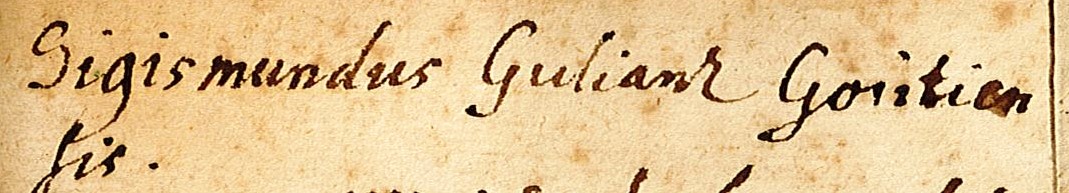 Sigismundus Gulianz Goritien
sis.